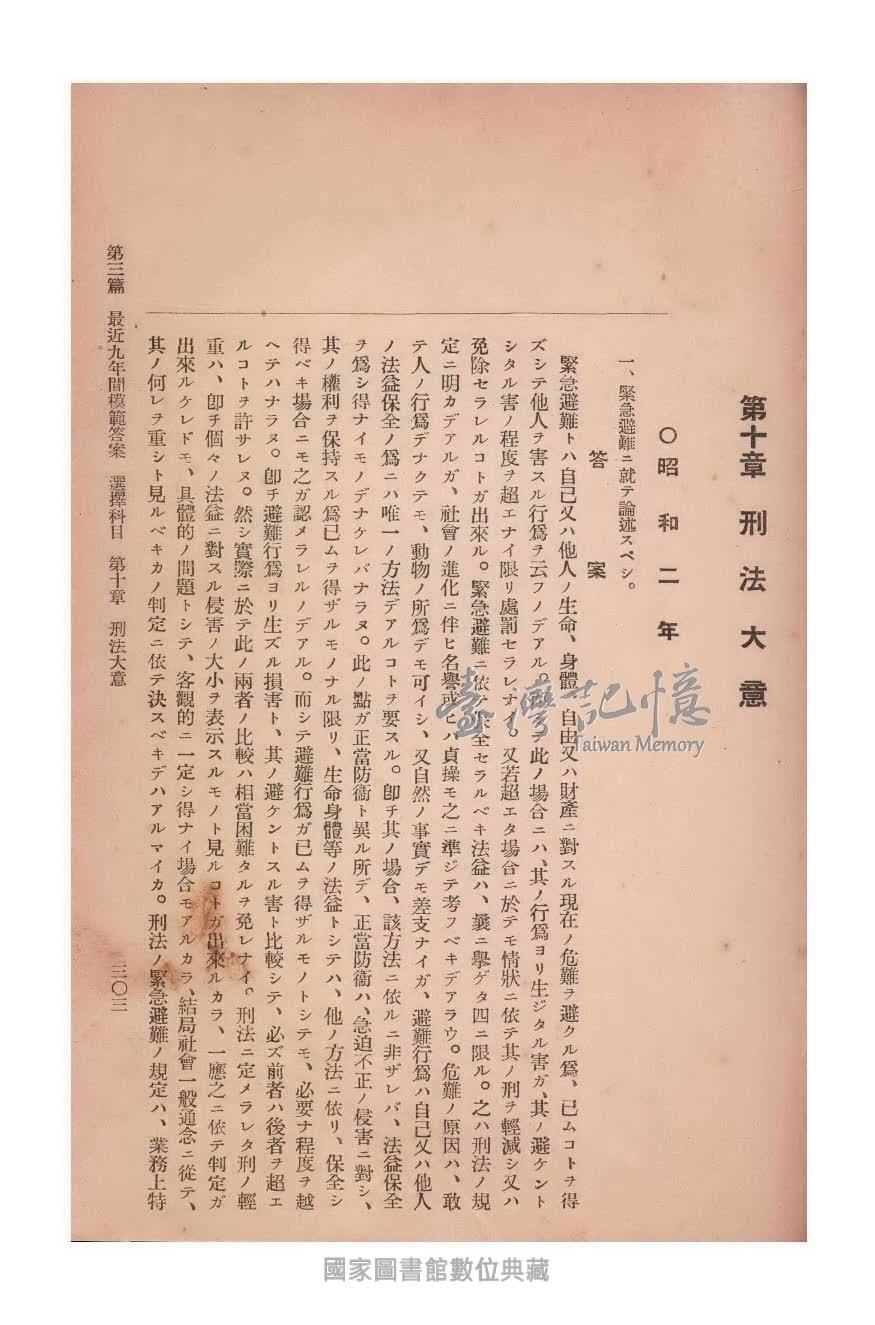 第十章 刑法大意
〇昭和二年
一、緊急避難ニ就テ論述スベシ。
答案
緊急避難トハ自己又ハ他人ノ生命、身體、自由又ハ財產ニ對スル現在ノ危難ヲ避クル爲、已ムコトヲ得
ズシテ他人ヲ害スル行爲ヲ云フノデアル。而シテ此ノ場合ニハ、其ノ行爲ヨリ生ジタル害ガ、其ノ避ケント
シタル害ノ程度ヲ超エナイ限リ處罰セラレナイ。又若超エタ場合ニ於テモ情狀ニ依テ其ノ刑ヲ輕減シ又ハ
免除セラレルコトガ出來ル。緊急避難ニ依テ保全セラルベキ法益ハ、曩ニ擧ゲタ四ニ限ル。之ハ刑法ノ規
定ニ明カデアルガ、社會ノ進化ニ伴ヒ名譽或ヒハ貞操モ之ニ準ジテ考フベキデアラウ。危難ノ原因ハ、敢
テ人ノ行爲デナクテモ、動物ノ所爲デモ可イシ、又自然ノ事實デモ差支ナイガ、避難行爲ハ自己又ハ他人
ノ法益保全ノ爲ニハ唯一ノ方法デアルコトヲ要スル。卽チ其ノ場合、該方法ニ依ルニ非ザレバ、法益保全
ヲ爲シ得ナイモノデナケレバナラヌ。此ノ點ガ正當防衞ト異ル所デ、正當防衞ハ、急迫不正ノ侵害ニ對シ、
其ノ權利ヲ保持スル爲已ムヲ得ザルモノナル限リ、生命身體等ノ法益トシテハ、他ノ方法ニ依リ、保全シ
得ベキ場合ニモ之ガ認メラレルノデアル。而シテ避難行爲ガ已ムヲ得ザルモノトシテモ、必要ナ程度ヲ越
ヘテハナラヌ。卽チ避難行爲ヨリ生ズル損害ト、其ノ避ケントスル害ト比較シテ、必ズ前者ハ後者ヲ超エ
ルコトヲ許サレヌ。然シ實際ニ於テ此ノ兩者ノ比較ハ相當困難タルヲ免レナイ。刑法ニ定メラレタ刑ノ輕
重ハ、卽チ個々ノ法益ニ對スル侵害ノ大小ヲ表示スルモノト見ルコトガ出來ルカラ、一應之ニ依テ判定ガ
出來ルケレドモ、具體的ノ問題トシテ、客觀的ニ一定シ得ナイ場合モアルカラ、結局社會一般通念ニ從テ、
其ノ何レヲ重シト見ルベキカノ判定ニ依テ決スベキデハアルマイカ。刑法ノ緊急避難ノ規定ハ、業務上特
第三篇 最近九年間模範答案 選擇科目 第十章 刑法大意
三〇三
臺灣記憶
Taiwan Memory
國家圖書館數位典藏